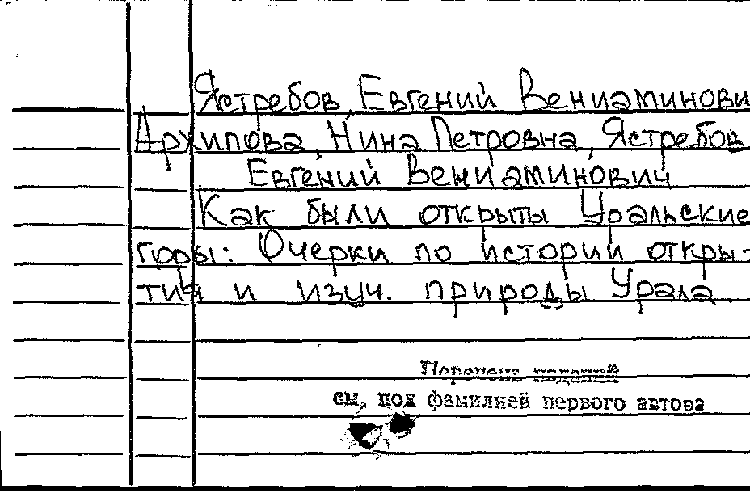 Ястребов, Евгений Вениаминови
Архипова, Нина Петровна, Ястребов
Евгений Вениаминович
Как были открыты Уральские
горы: Очерки по истории откры-
тия и изуч. природы Урала
Перечень изданий
см. под фамилией первого автора